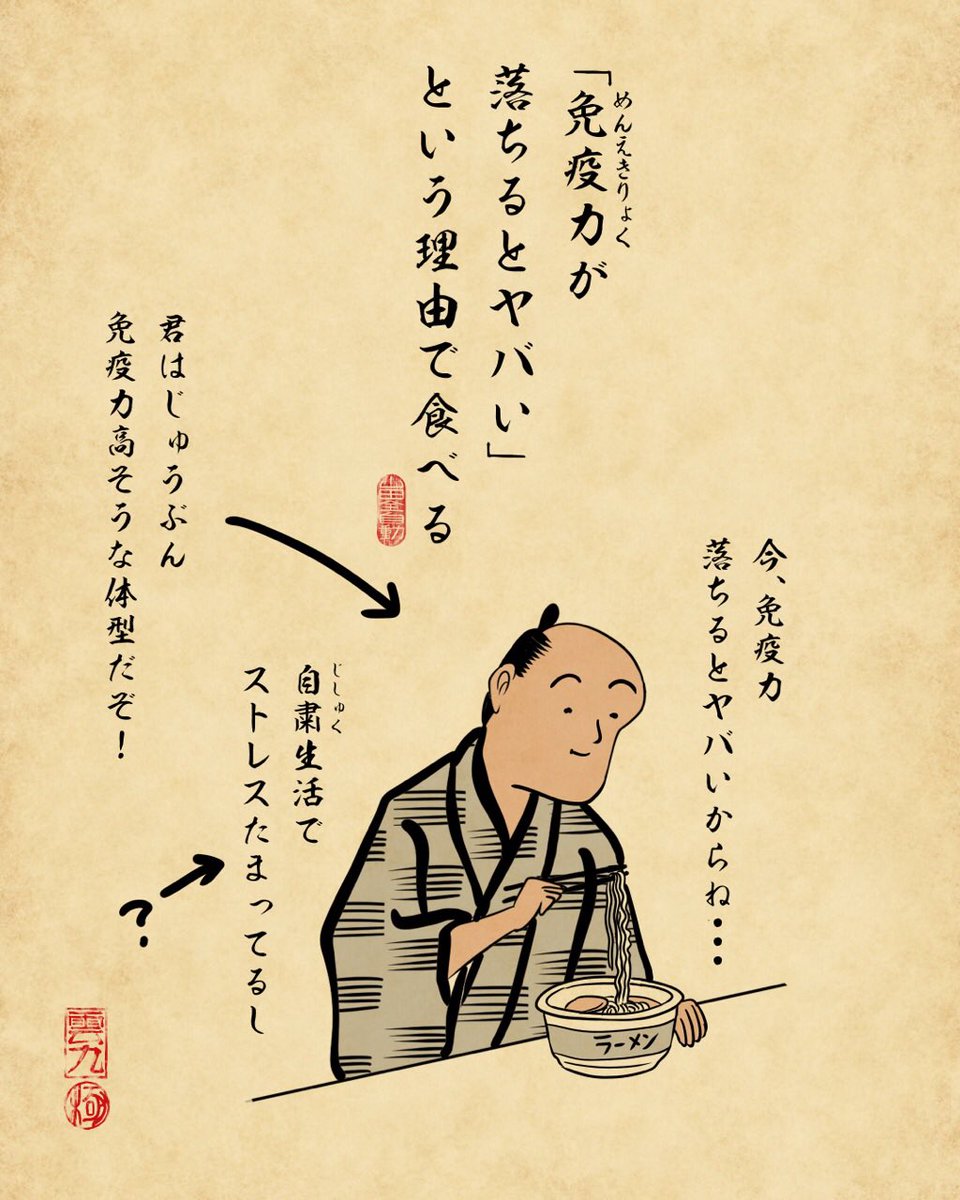 「免疫力が
めんえきりょく
落ちるとヤバい」
という理由で食べる
今、免疫力
落ちるとヤバいからね・・・
自粛生活で
じしゅく
ストレスたまってるし
?
君はじゅうぶん
免疫力高そうな体型だぞ!
ラーメン
雲九
極